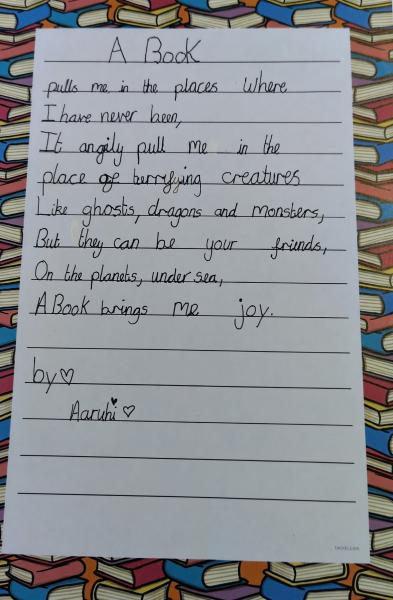 A Book
pulls me in the places where
I have never been,
It angily pull me in the
place of terrifying creatures
Like ghosts, dragons and monsters,
But they can be your friends,
On the planets, under sea,
A Book brings me joy.
by♡
Aaruhi ♡